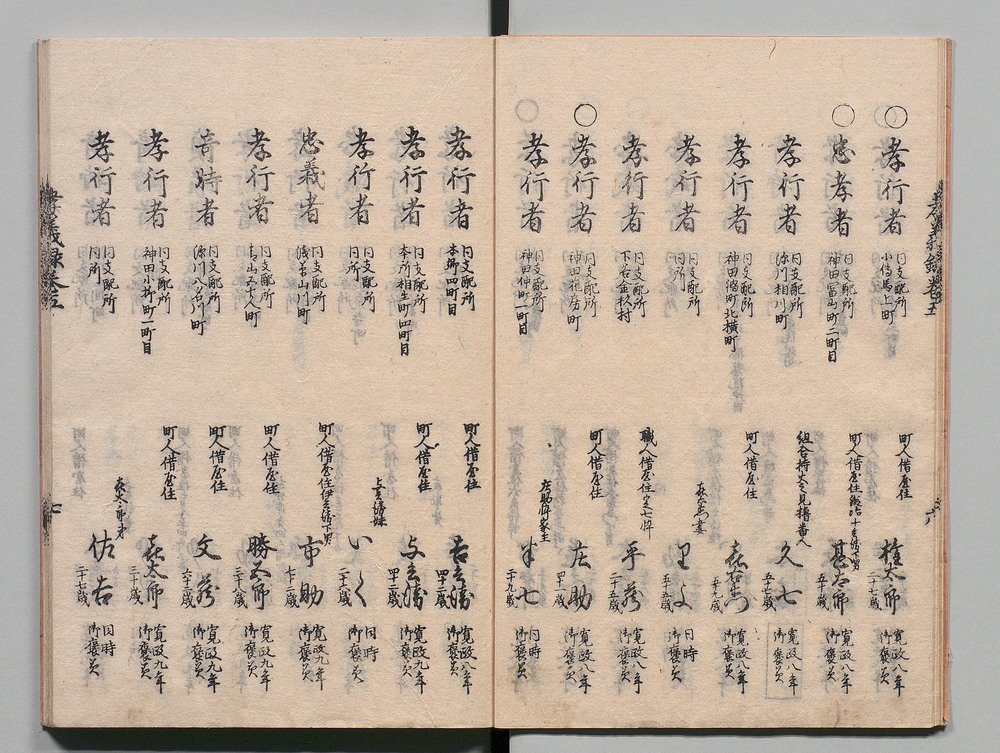 孝義録巻五
六
○孝行者
同支配所
小傳馬上町
町人借屋住
権太郎
二十七歳
寛政八年
御褒美
○忠孝者
同支配所
神田冨山町二町目
町人借屋住
甚太郎
五十歳
寛政八年
御褒美
孝行者
同支配所
深川相川町
組合持火之見橹番人
久七
五十七歳
寛政八年
御褒美
孝行者
同支配所
神田鍋町北横町
町人借屋住
五十九歳
寛政八年
御褒美
孝行者
同支配所
同所
五十五歳
同時
御褒美
孝行者
同支配所
下谷金杉村
職人借屋住
平蔵
二十一歳
寛政八年
御褒美
○孝行者
同支配所
神田花房町
町人借屋住
庄助
四十一歳
寛政八年
御褒美
○孝行者
同支配所
神田仲町一町目
庄助忰家主
半七
二十九歳
同時
御褒美
孝行者
同支配所
本郷四町目
町人借屋住
吉之勝
寛政九年
御褒美
孝行者
同支配所
本所相生町四町目
町人借屋住
寛政九年
御褒美
孝行者
同支配所
同所
いく
二十六歳
同時
御褒美
忠義者
同支配所
浅草山川町
町人借屋住
市助
七十二歳
寛政九年
御褒美
孝行者
同支配所
町人借屋住
勝五郎
三十八歳
寛政九年
御褒美
奇特者
同支配所
深川八名川町
町人借屋住
文蔵
六十三歳
寛政九年
御褒美
孝行者
同支配所
神田小柳町一町目
町人借屋住
喜太郎
三十歳
寛政九年
御褒美
孝行者
同支配所
同所
喜太郎弟
佐吉
二十七歳
同時
御褒美
孝義録巻五
七